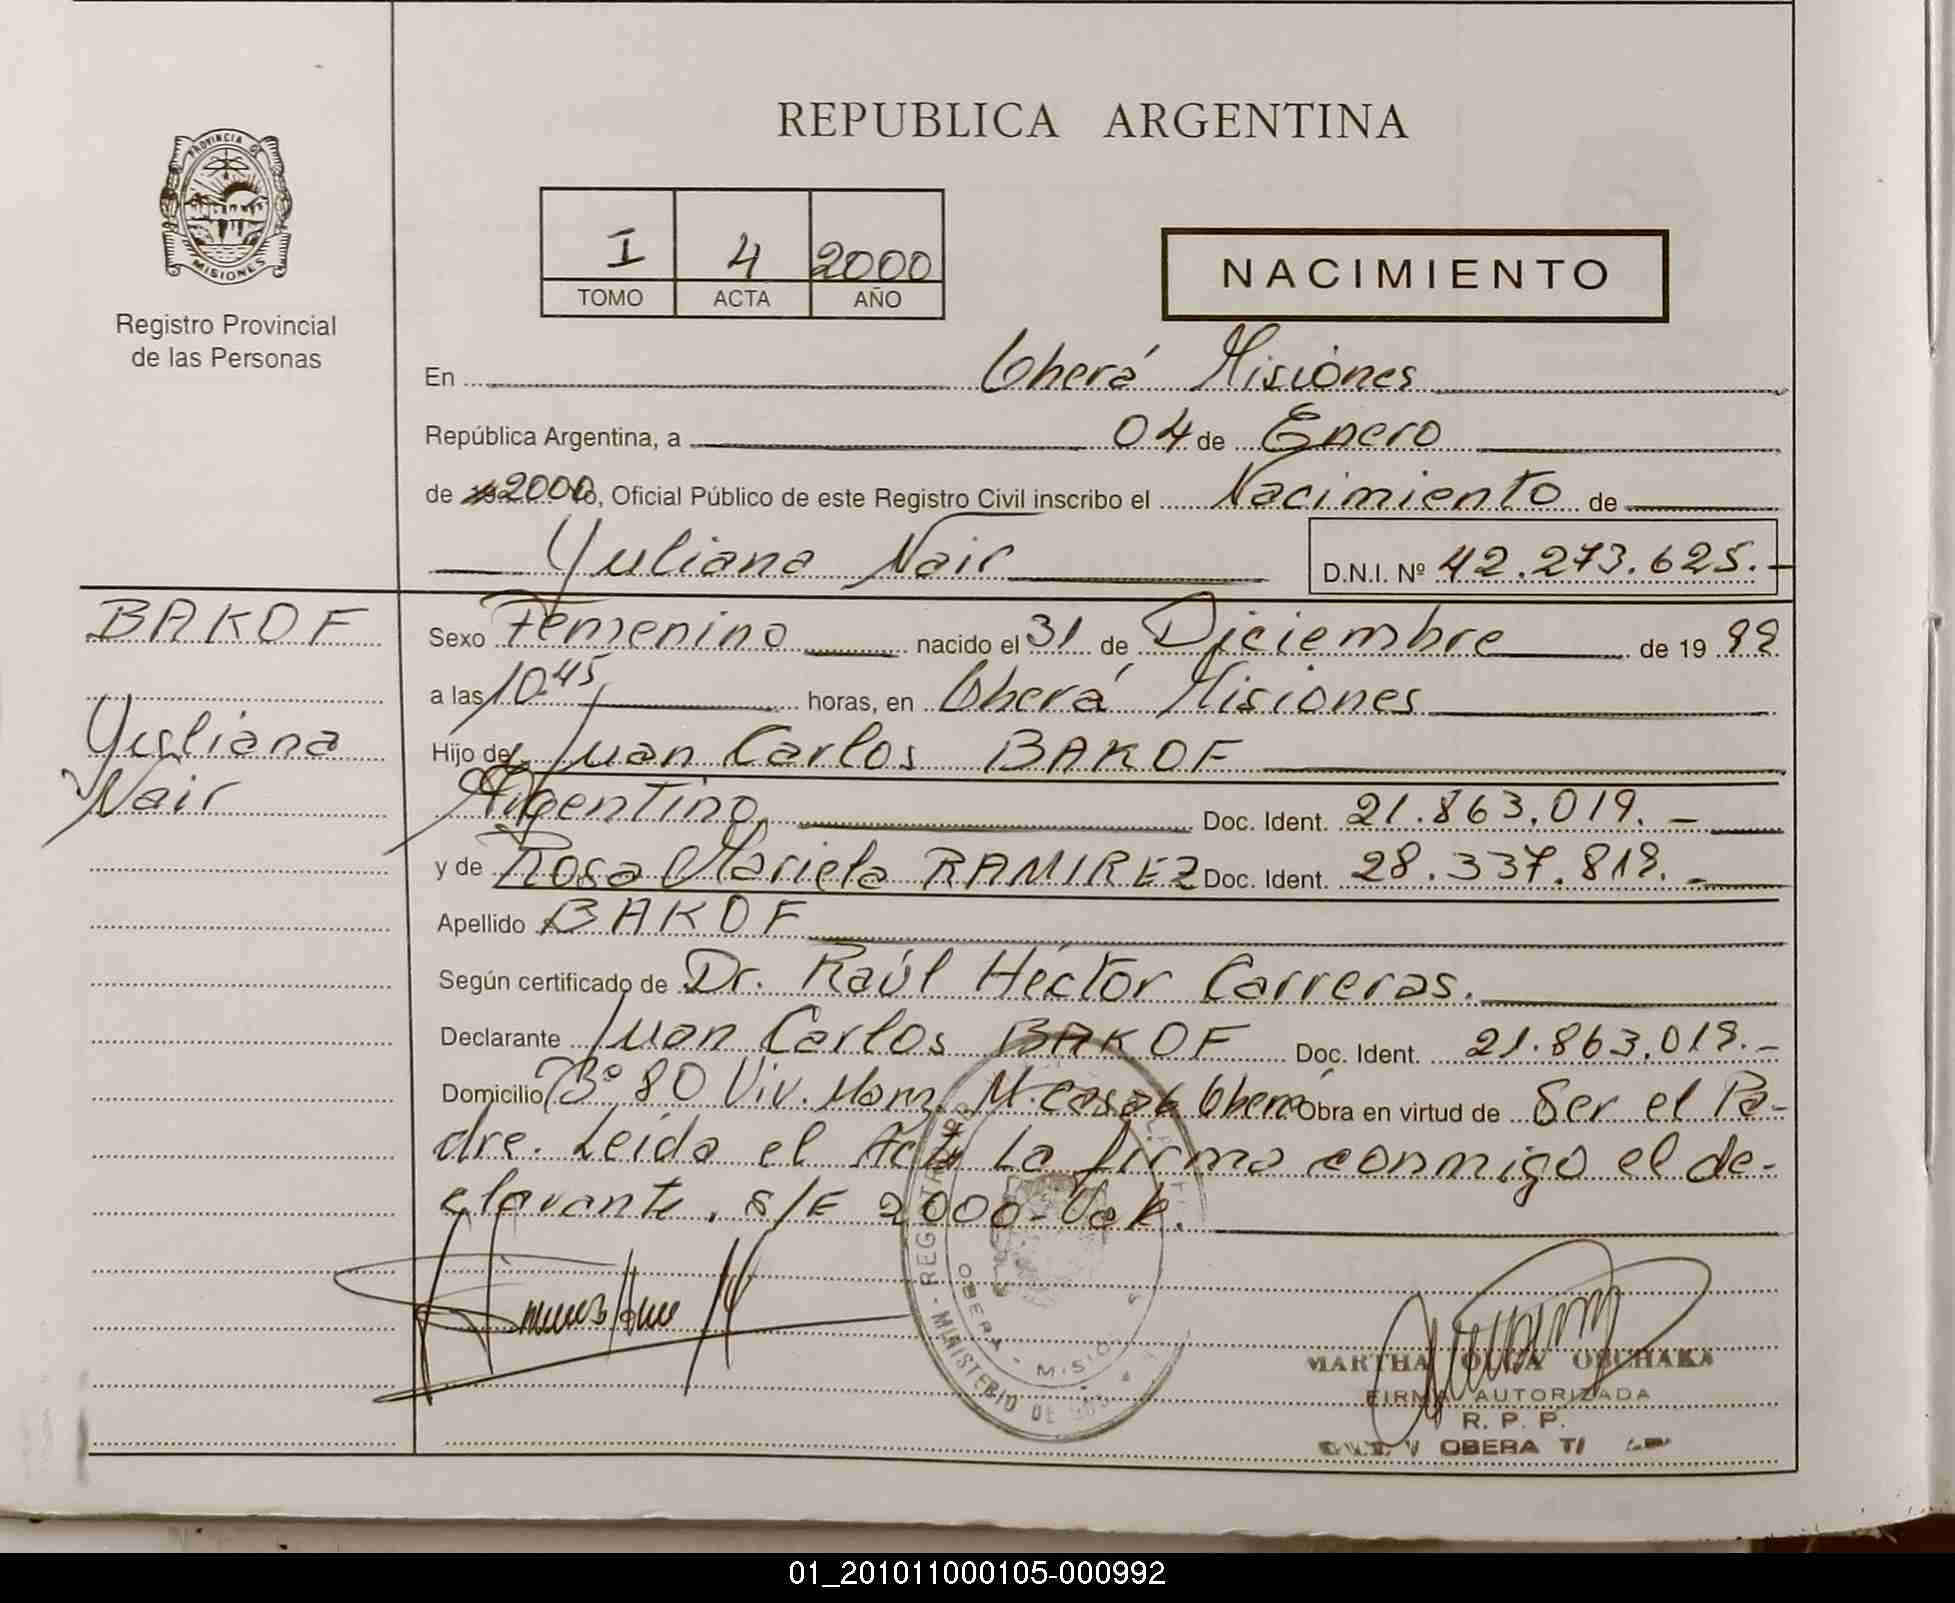 REPUBLICA ARGENTINA
PROVINCIA DE
MISIONES
Registro Provincial
de las Personas
I 4 2000
TOMO ACTA AÑO
NACIMIENTO
En Oberá Misiones
República Argentina, a 04 de Enero
de 2000, Oficial Público de este Registro Civil inscribo el Nacimiento de
Yuliana Nair D.N.I. Nº 42.273.625.-
BAKOF
Yuliana
Nair
Sexo Femenino nacido el 31 de Diciembre de 19 99
a las 10.45 horas, en Oberá Misiones
Hijo de Juan Carlos BAKOF
Argentino Doc. Ident. 21.863.019.-
y de Rosa Mariela RAMIREZ Doc. Ident. 28.337.819.-
Apellido BAKOF
Según certificado de Dr. Raúl Héctor Carreras.
Declarante Juan Carlos BAKOF Doc. Ident. 21.863.019.-
Domicilio Bº 80 Viv. Manz. M. casa 6 Oberá Obra en virtud de Ser el Pa-
dre. Leída el Acta La firma conmigo el de-
clarante. S/E 2000- Vale.
OBERA - MISIO
MINISTERIO DE
MARTHA OLGA
FIRMA AUTORIZADA
R. P. P.
OBERA
01_201011000105-000992